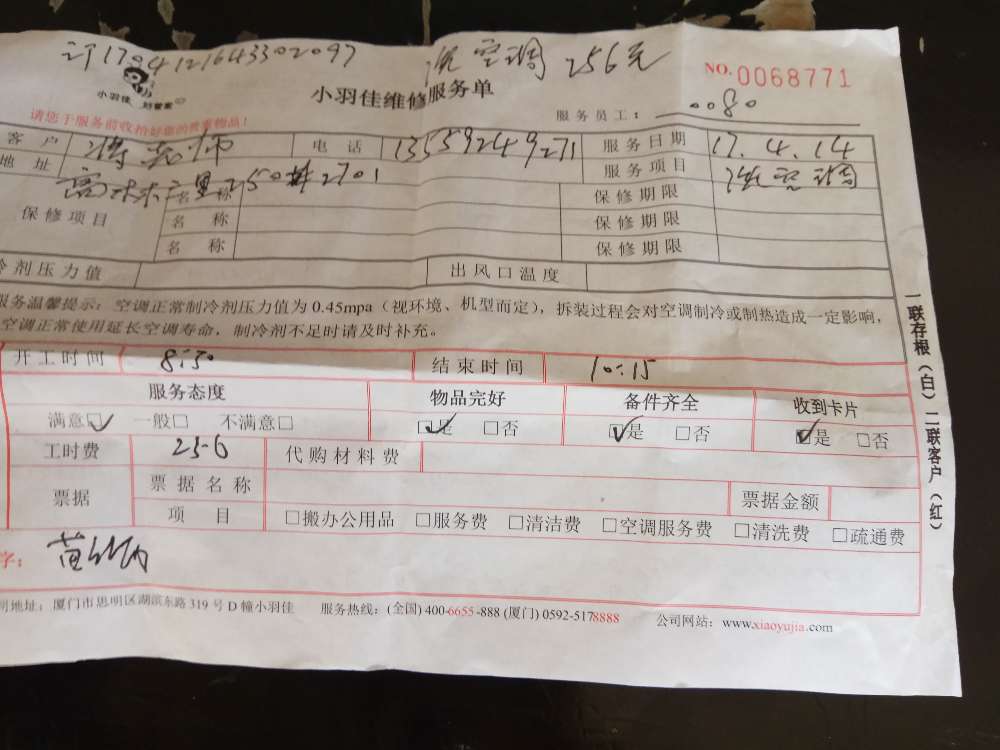 订1704121643302097 洗空调 256元
NO. 0068771
小羽佳 好管家
小羽佳维修服务单
请您于服务前收拾好您的贵重物品!
服务员工: 0080
客户 老师 电话 13559249271 服务日期 17.4.14
地址 250#2701 服务项目 洗空调
保修项目 名称 保修期限
名称 保修期限
名称 保修期限
冷剂压力值 出风口温度
服务温馨提示:空调正常制冷剂压力值为0.45mpa(视环境、机型而定),拆装过程会对空调制冷或制热造成一定影响,
空调正常使用延长空调寿命,制冷剂不足时请及时补充。
开工时间 8:50 结束时间 10:15
服务态度 物品完好 备件齐全 收到卡片
满意☑ 一般□ 不满意□ ☑是 □否 ☑是 □否 ☑是 □否
工时费 256 代购材料费
票据 票据名称 票据金额
项目 □搬办公用品 □服务费 □清洁费 □空调服务费 □清洗费 □疏通费
字:
州地址:厦门市思明区湖滨东路319号D幢小羽佳 服务热线:(全国)400-6655-888 (厦门)0592-5178888 公司网站:www.xiaoyujia.com
一联存根(白)二联客户(红)